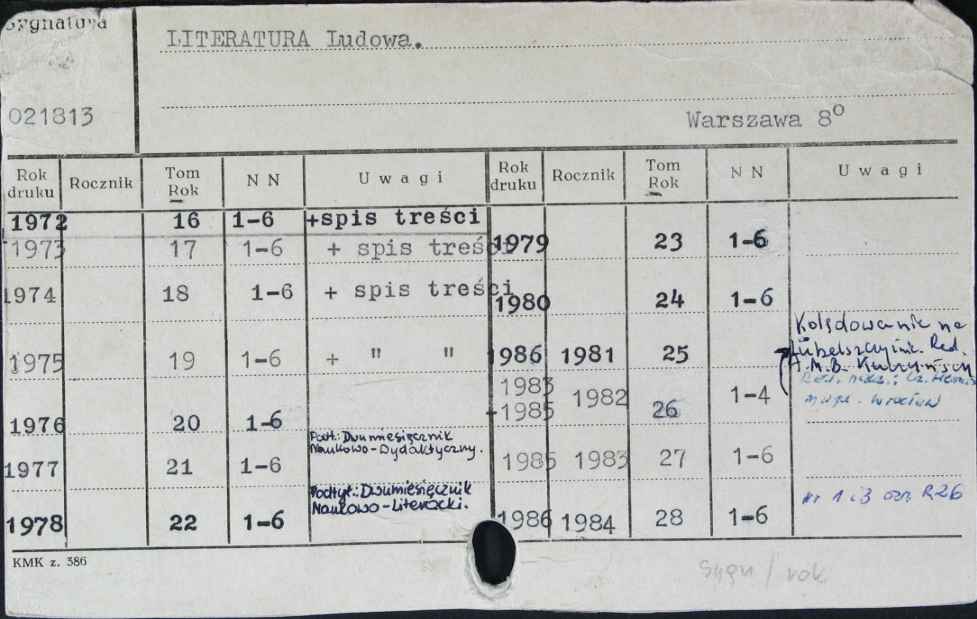 Sygnatura
LITERATURA Ludowa.
021813
Warszawa 8°
Rok druku Rocznik Tom Rok N N Uwagi Rok druku Rocznik Tom Rok N N Uwagi
1972 16 1-6 +spis treści
1973 17 1-6 + spis treści
1979 23 1-6
1974 18 1-6 + spis treści
1980 24 1-6
1975 19 1-6 + " "
1986 1981 25
Kolędowanie na
Lubelszczyźnie. Red.
1983
-1985 1982 26 1-4
1976 20 1-6
Podt.: Dwumiesięcznik
Naukowo-Dydaktyczny.
1977 21 1-6
1985 1983 27 1-6
Podtyt.: Dwumiesięcznik
Naukowo-Literacki.
1978 22 1-6
1986 1984 28 1-6
nr 1 i 3 ozn. R26
KMK z. 386
Sygn / rok